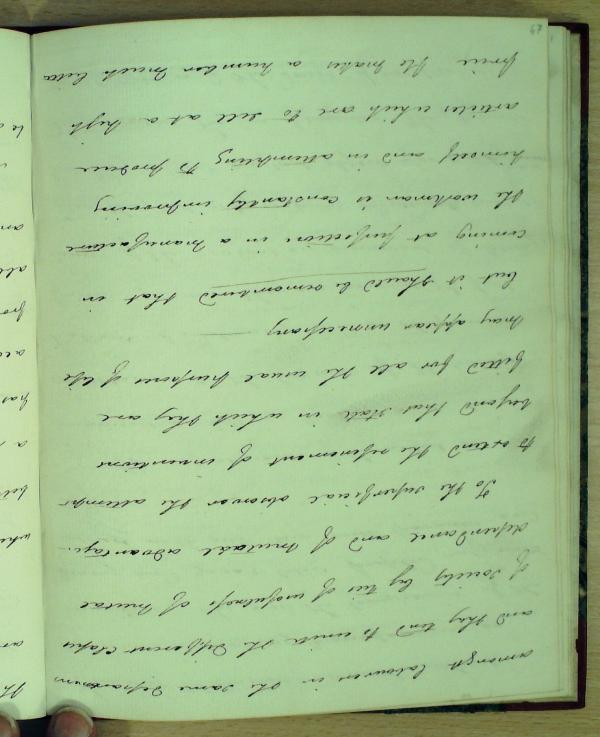 amongst labourers in the same Department
and they tend to unite the different Classes
of society by ties of usefulness of mutual
dependance and of mutual advantage.
To the superficial observer the attempt
to extend the refinement of inventions
beyond that state in which they are
fitted for all the usual purposes of life
may appear unnecessary
but it should be remembered that in
coming at perfection in a manufacture
the workman is constantly improving
himself and in attempting to produce
articles which are to sell at a high
price he makes a number much better
67